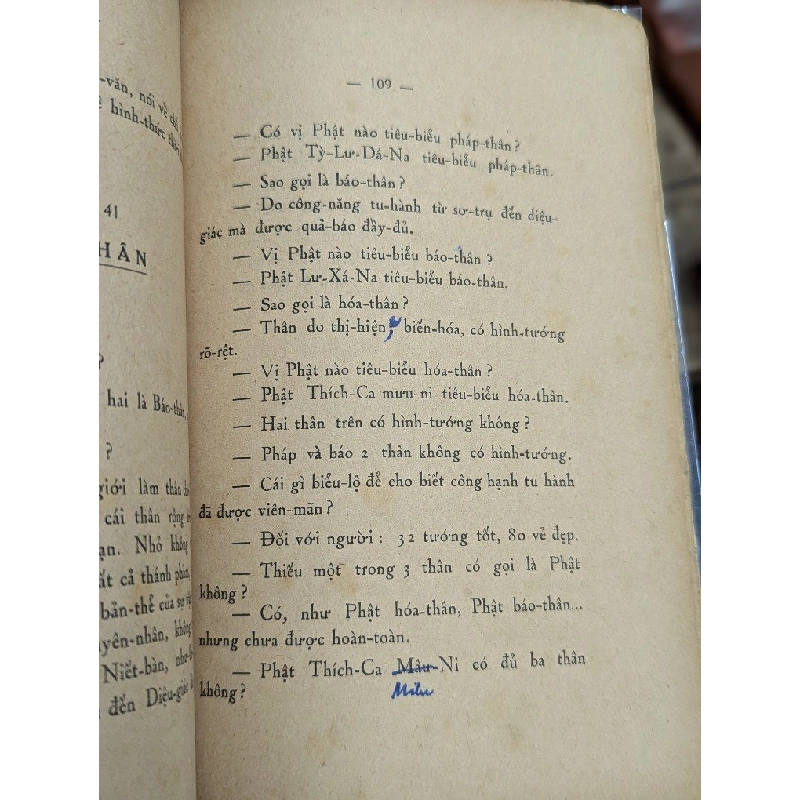 -văn, nói về
hình-thức
41
HÂN
?
hai là Báo-thân,
?
giới làm thân
cái thân rộng
ạn. Nhỏ không
ất cả thánh phàm,
bản-thể của sự
uyên-nhân, không
Niết-bàn, như
đến Diệu-giác
— 109 —
— Có vị Phật nào tiêu-biểu pháp-thân ?
— Phật Tỳ-Lư-Dá-Na tiêu-biểu pháp-thân.
— Sao gọi là báo-thân ?
— Do công-năng tu-hành từ sơ-trụ đến diệu-
giác mà được quả-báo đầy-đủ.
— Vị Phật nào tiêu-biểu báo-thân ?
— Phật Lư-Xá-Na tiêu-biểu báo-thân.
— Sao gọi là hóa-thân ?
— Thân do thị-hiện, biến-hóa, có hình-tướng
rõ-rệt.
— Vị Phật nào tiêu-biểu hóa-thân ?
— Phật Thích-Ca mưu-ni tiêu-biểu hóa-thân.
— Hai thân trên có hình-tướng không ?
— Pháp và báo 2 thân không có hình-tướng.
— Cái gì biểu-lộ để cho biết công hạnh tu hành
đã được viên-mãn ?
— Đối với người : 32 tướng tốt, 80 vẻ đẹp.
— Thiếu một trong 3 thân có gọi là Phật
không ?
— Có, như Phật hóa-thân, Phật báo-thân...
nhưng chưa được hoàn-toàn.
— Phật Thích-Ca Mâu-Ni có đủ ba thân
không ?